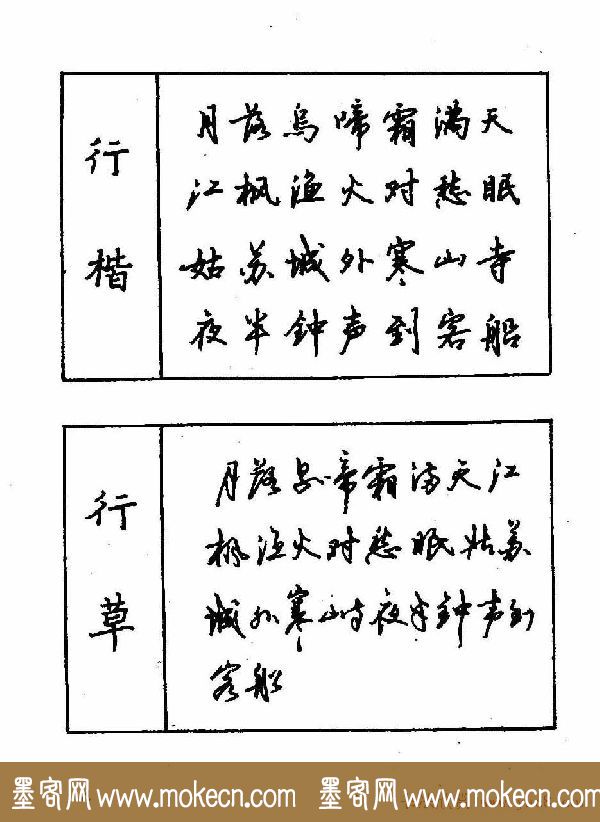 行楷
月落乌啼霜满天
江枫渔火对愁眠
姑苏城外寒山寺
夜半钟声到客船
行草
月落乌啼霜满天江
枫渔火对愁眠姑苏
城外寒山寺夜半钟声到
客船
墨客网 www.mokecn.com 墨客网 www.mokecn.com